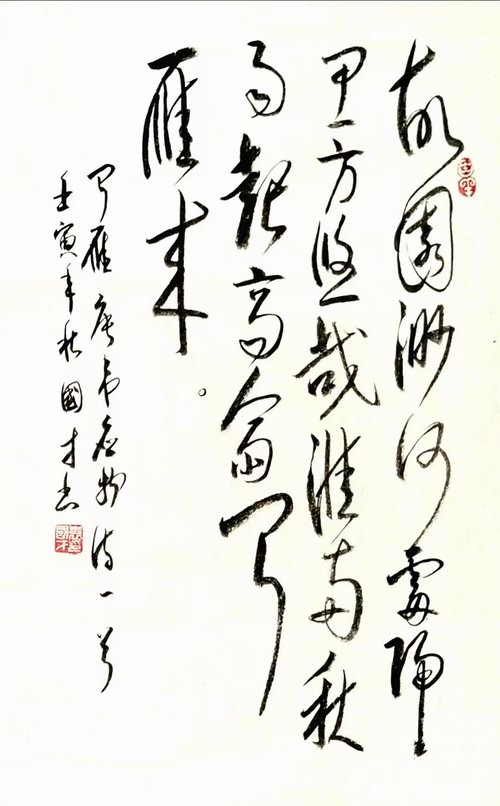 故園渺何處歸
思方悠哉淮南秋
雨高斋闻
雁来。
闻雁 唐韦应物诗一首
壬寅年秋國才书